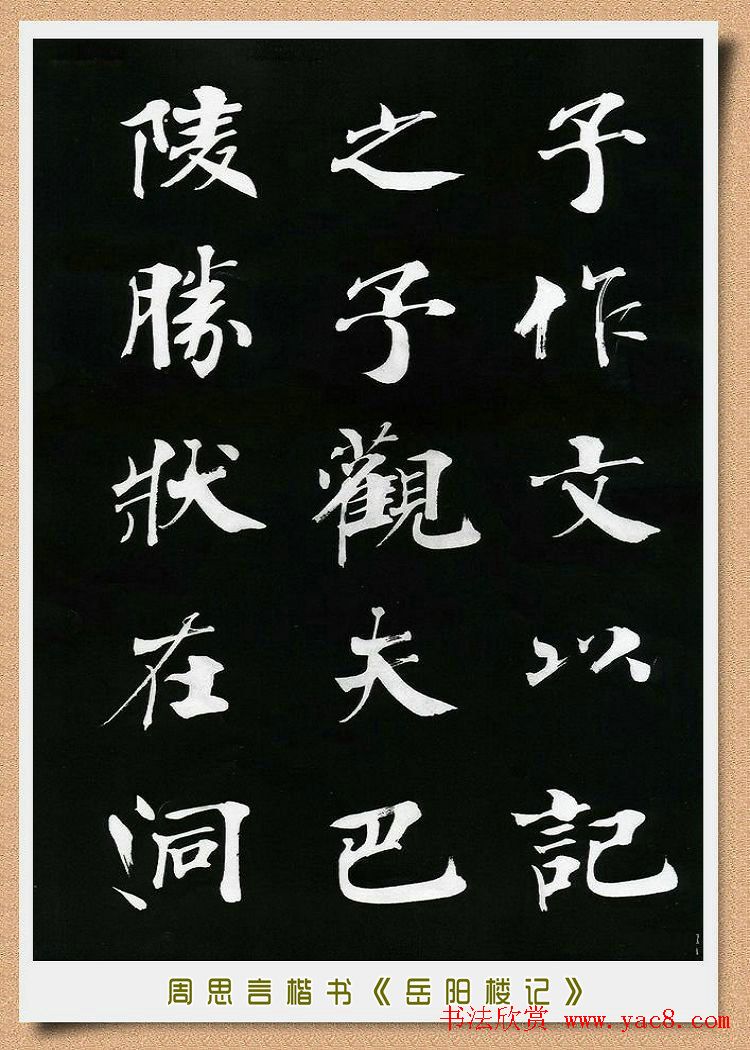 予作文以記
之予觀夫巴
陵勝狀在洞
周思言楷书《岳阳楼记》
书法欣赏 www.yac8.com